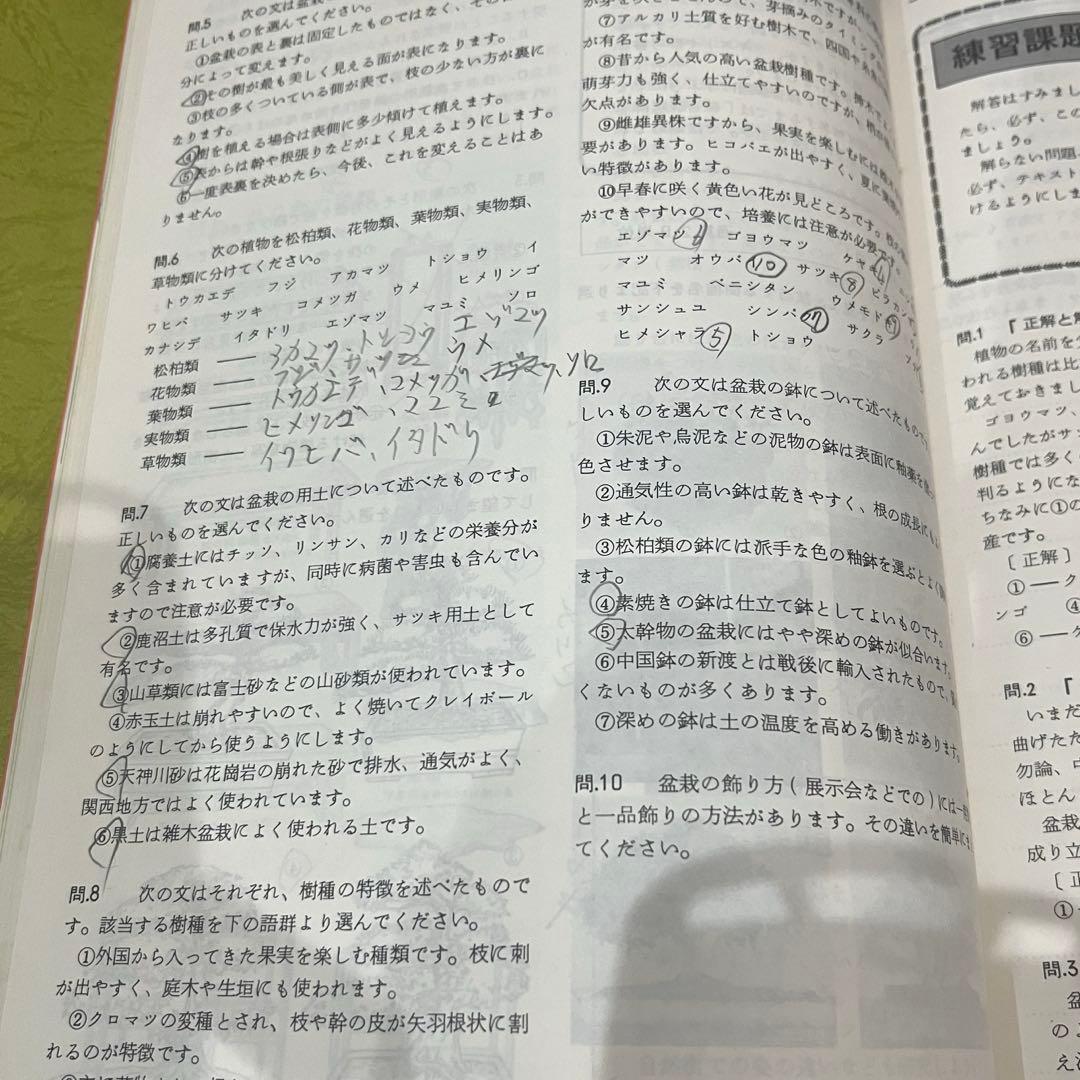 問.5　次の文は盆栽
正しいものを選んでください。
①盆栽の表と裏は固定したものではなく、その
分によって変えます。
②その樹が最も美しく見える面が表になります。
③枝の多くついている側が表で、枝の少ない方が裏に
なります。
④樹を植える場合は表側に多少傾けて植えます。
⑤表からは幹や根張りなどがよく見えるようにします。
⑥一度表裏を決めたら、今後、これを変えることはあ
りません。
問.6　次の植物を松柏類、花物類、葉物類、実物類、
草物類に分けてください。
トウカエデ　フジ　アカマツ　トショウ　イ
ワヒバ　サツキ　コメツガ　ウメ　ヒメリンゴ
カナシデ　イタドリ　エゾマツ　マユミ　ソロ
松柏類 ── アカマツ、トショウ エゾマツ
花物類 ── フジ、サツキ ウメ
葉物類 ── トウカエデ、コメツガ、ソロ
実物類 ── ヒメリンゴ、マユミ
草物類 ── イワヒバ、イタドリ
問.7　次の文は盆栽の用土について述べたものです。
正しいものを選んでください。
①腐養土にはチッソ、リンサン、カリなどの栄養分が
多く含まれていますが、同時に病菌や害虫も含んでい
ますので注意が必要です。
②鹿沼土は多孔質で保水力が強く、サツキ用土として
有名です。
③山草類には富士砂などの山砂類が使われています。
④赤玉土は崩れやすいので、よく焼いてクレイボール
のようにしてから使うようにします。
⑤天神川砂は花崗岩の崩れた砂で排水、通気がよく、
関西地方ではよく使われています。
⑥黒土は雑木盆栽によく使われる土です。
問.8　次の文はそれぞれ、樹種の特徴を述べたもので
す。該当する樹種を下の語群より選んでください。
①外国から入ってきた果実を楽しむ種類です。枝に刺
が出やすく、庭木や生垣にも使われます。
②クロマツの変種とされ、枝や幹の皮が矢羽根状に割
れるのが特徴です。
芽摘みのタイミング
⑦アルカリ土質を好む樹木で、四国や
が有名です。
⑧昔から人気の高い盆栽樹種です。挿木
萌芽力も強く、仕立てやすいのですが、
欠点があります。
⑨雌雄異株ですから、果実を楽しむには
要があります。ヒコバエが出やすく、夏に
い特徴があります。
⑩早春に咲く黄色い花が見どころです。枝の
ができやすいので、培養には注意が必要です。
エゾマツ 6　ゴヨウマツ　ケヤキ 4
マツ　オウバイ 10　サツキ 8　ピラカン
マユミ　ベニシタン　ウメモドキ 9
サンシュユ　シンパク 7　サクラ
ヒメシャラ 5　トショウ
問.9　次の文は盆栽の鉢について述べたもので
しいものを選んでください。
①朱泥や烏泥などの泥物の鉢は表面に釉薬を使っ
色させます。
②通気性の高い鉢は乾きやすく、根の成長にもよ
りません。
③松柏類の鉢には派手な色の釉鉢を選ぶとよく
ます。
④素焼きの鉢は仕立て鉢としてよいものです。
⑤太幹物の盆栽にはやや深めの鉢が似合います。
⑥中国鉢の新渡とは戦後に輸入されたもので、
くないものが多くあります。
⑦深めの鉢は土の温度を高める働きがあります。
問.10　盆栽の飾り方（展示会などでの）には一
と一品飾りの方法があります。その違いを簡単に
てください。
練習課題
解答はすみまし
たら、必ず、この
ましょう。
解らない問題
必ず、テキスト
けるようにしま
問.1　「正解と
植物の名前を
われる樹種は比
覚えておきまし
ゴヨウマツ、
んでしたがサ
樹種では多く
判るようにな
ちなみに①の
産です。
［正解］
①──ク
ンゴ　④
⑥──ケ
問.2　「
いまだ
曲げたた
勿論、中
ほとん
盆栽
成り立
［正
①
問.3
のよ
え